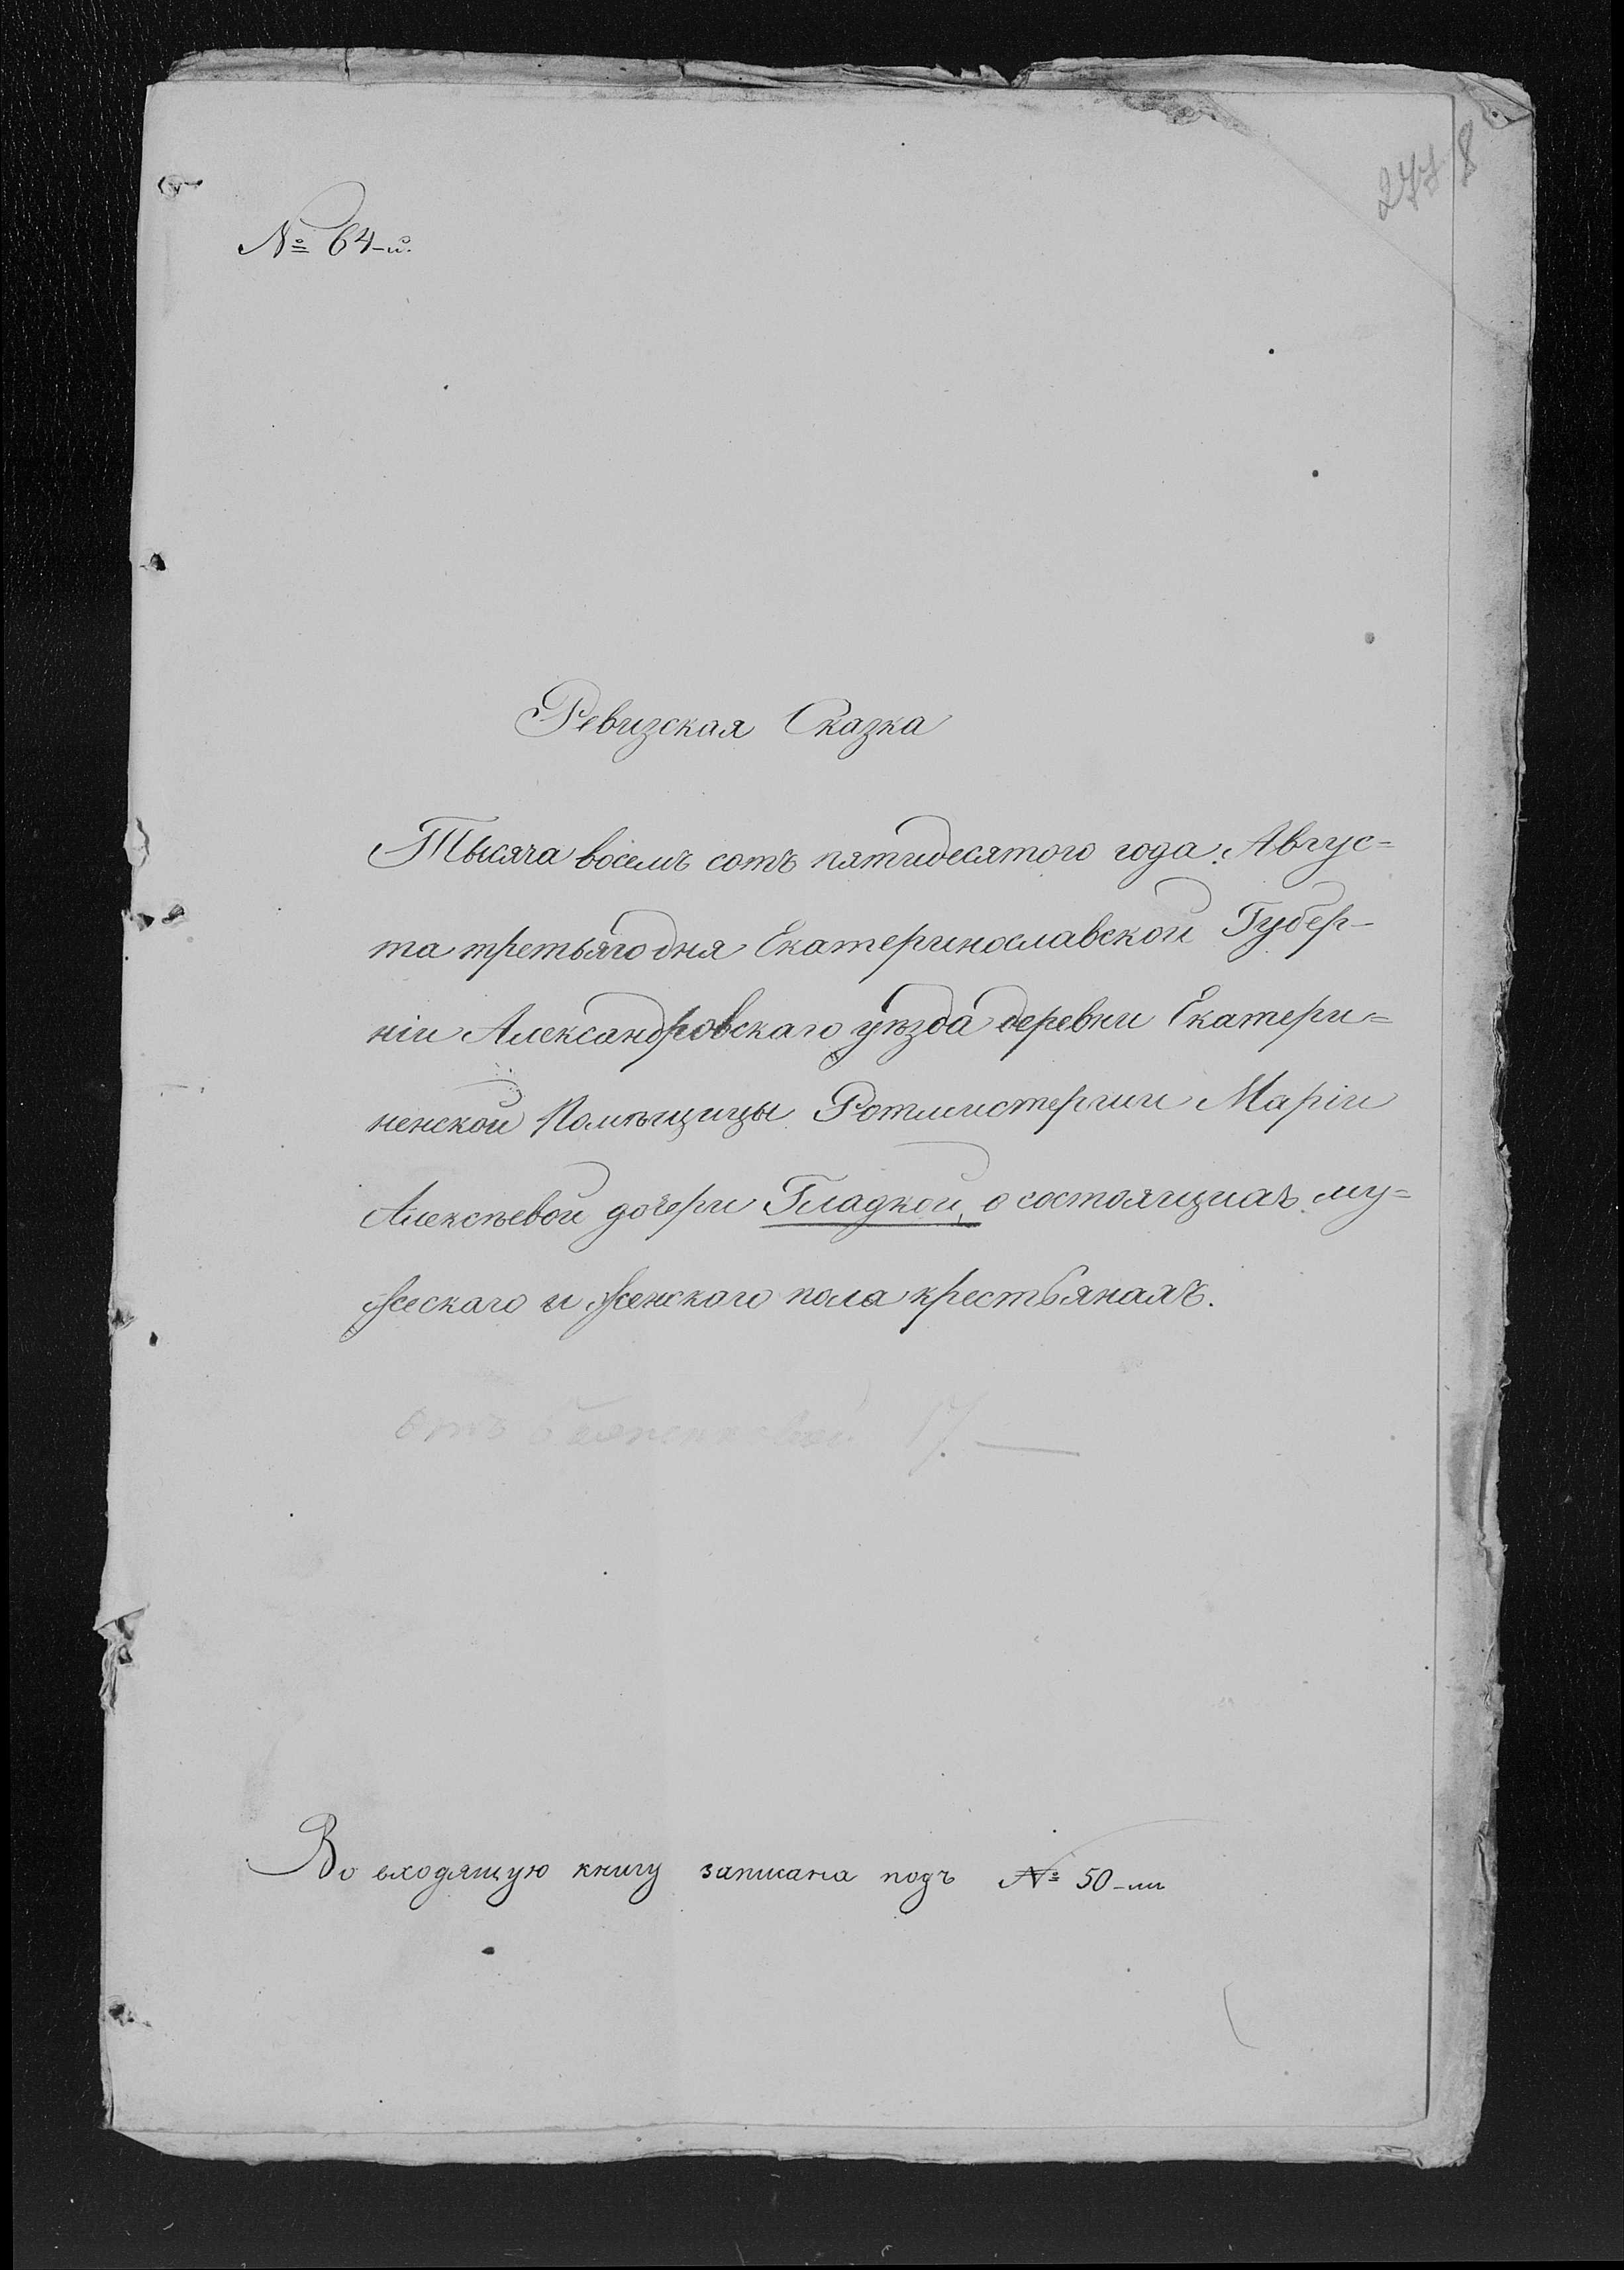 277 8
№ 64-й.
Ревизская Сказка
Тысяча восемь сотъ пятидесятого года. Авгус=
та третьяго дня Екатеринославской Губер-
ніи Александровскаго уѣзда деревни Екатери=
ненской Помѣщицы Ротмистерши Маріи
Алексѣевой дочери Гладкой, о состоящихъ му=
жескаго и женскаго пола крестьянахъ.
Отъ 17. —
Во входящую книгу записана подъ № 50-мъ